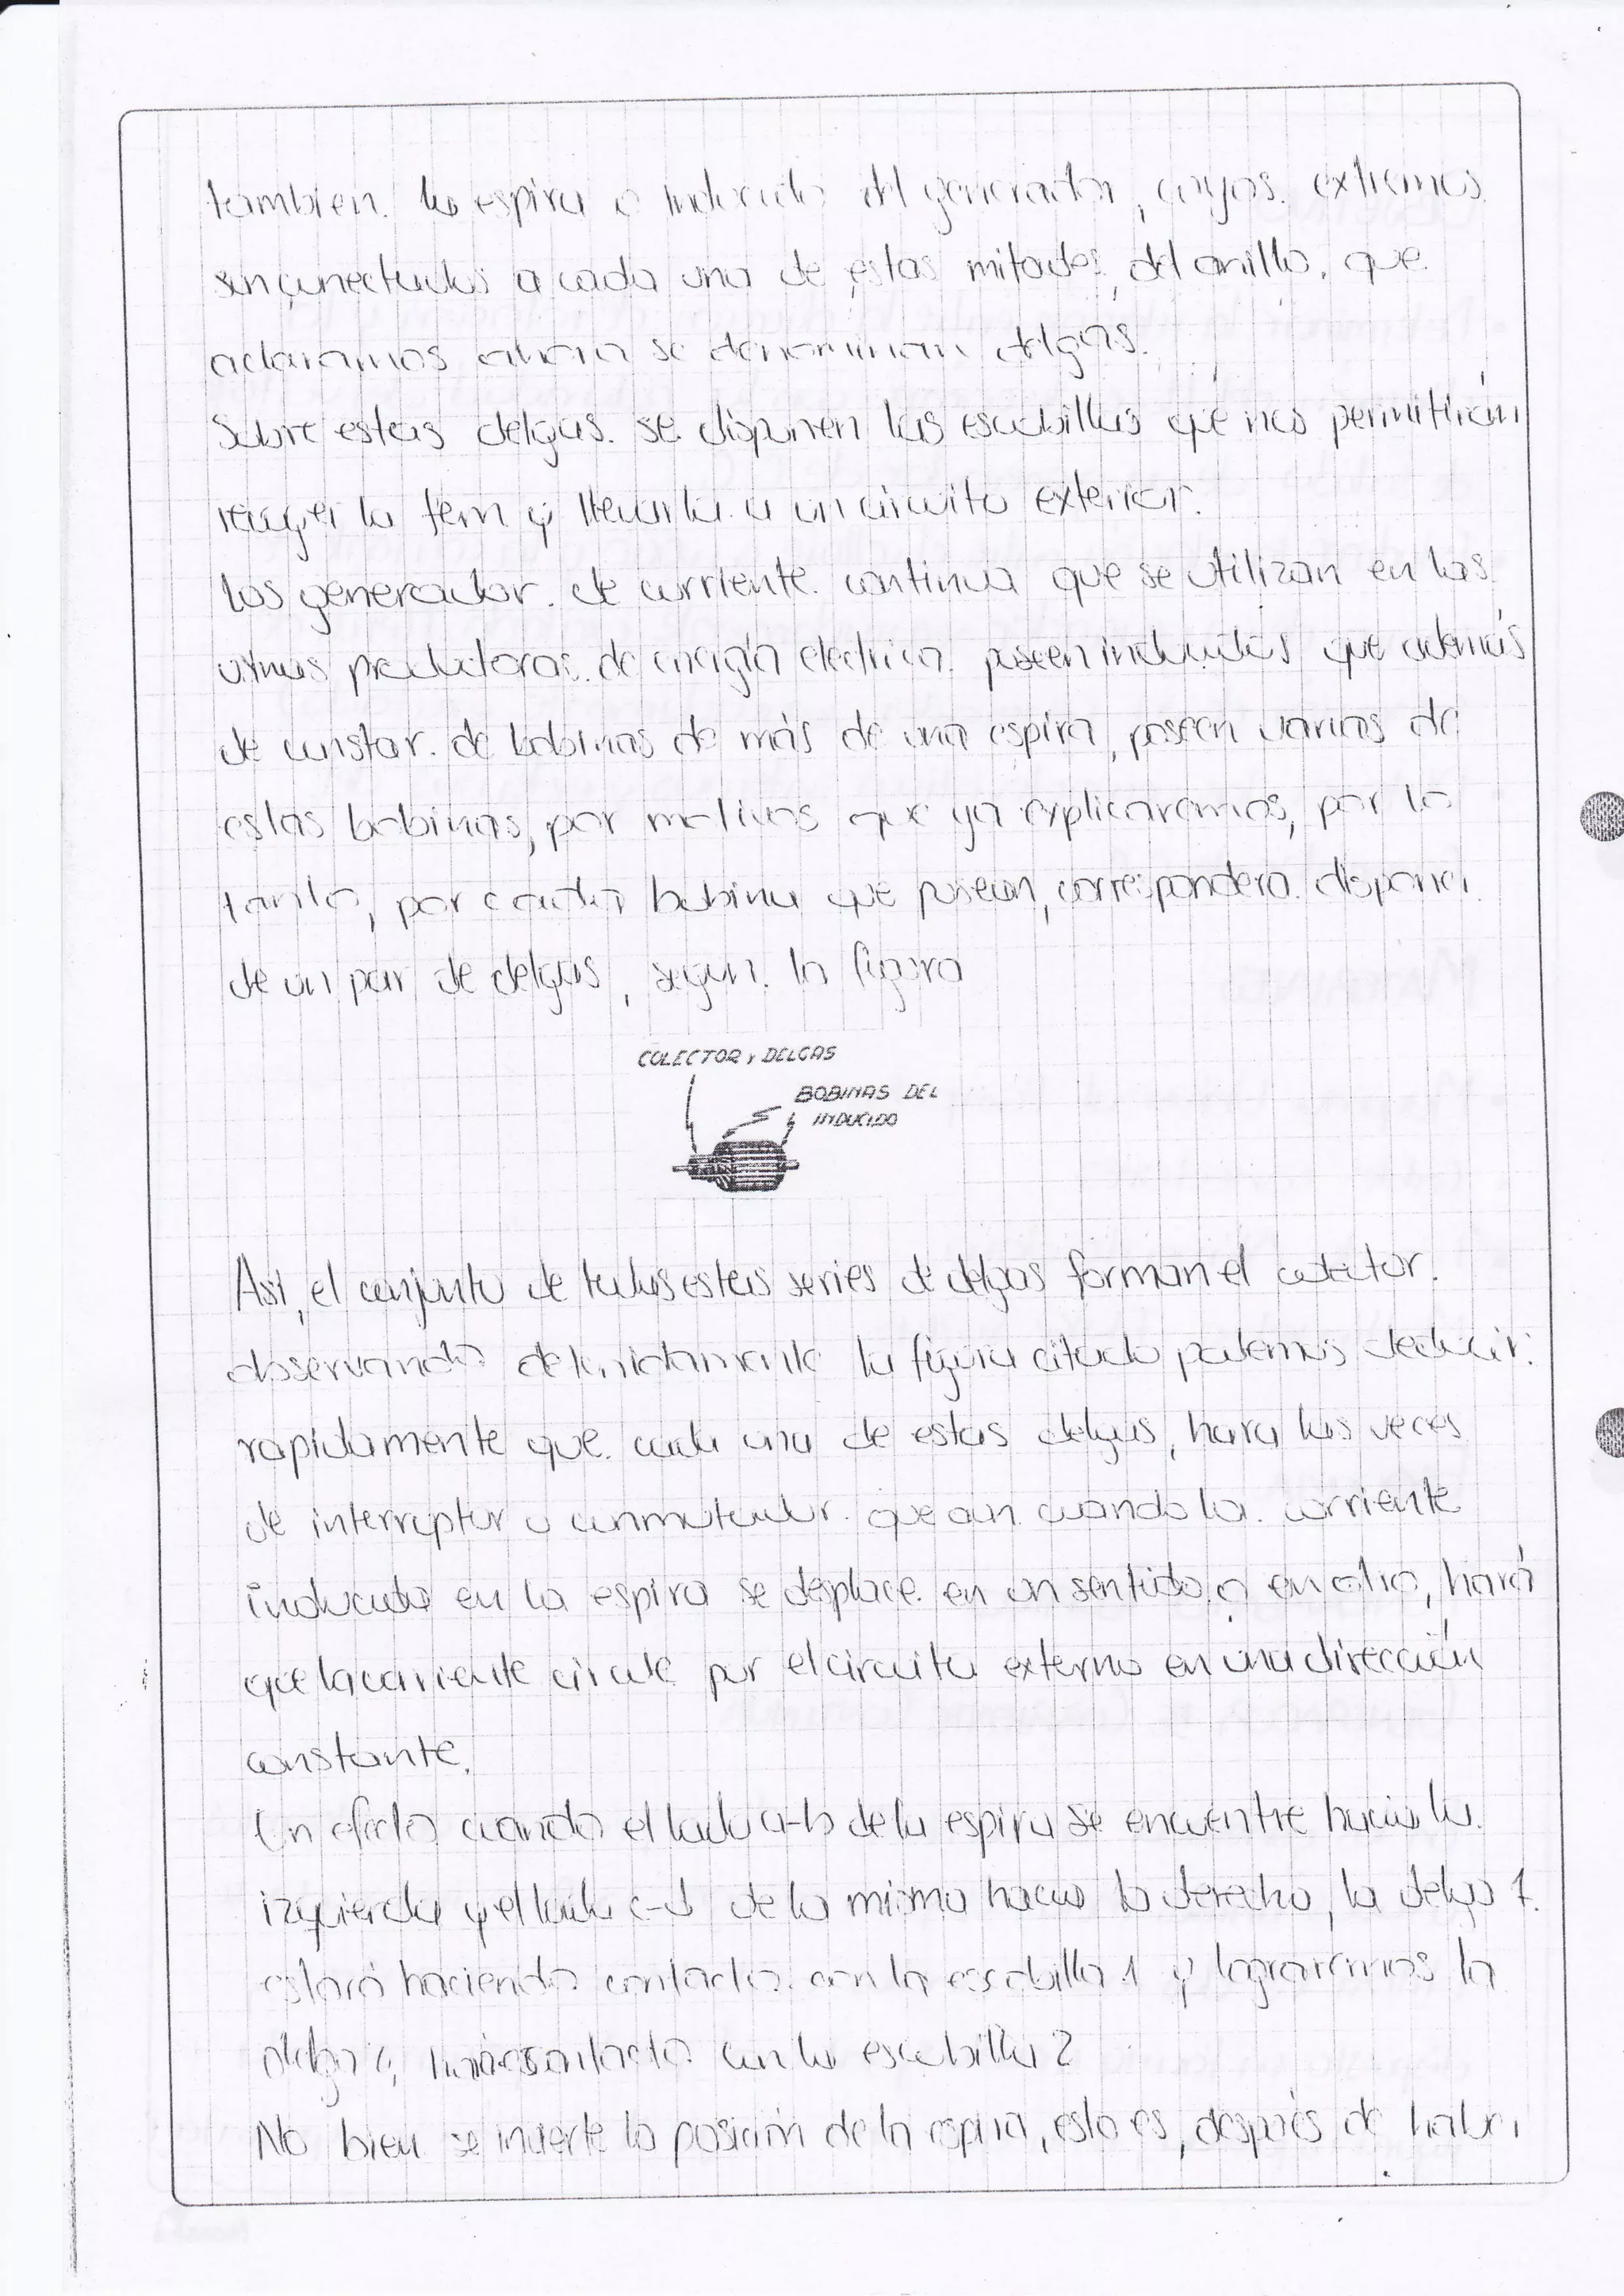 tambien. la espira o inducido del generador, cuyos. extremos
son conectados a cada una de estas mitades, del anillo, que
aclaramos ahora se denominan delgas.
Sobre estas delgas. se disponen las escobillas que nos permitirán
recoger la fem y llevarla a un circuito exterior.
los generador. de corriente. continua que se utilizan en las
usinas productoras. de energía electrica. poseen inducidos que además
de constar. de bobinas de más de una espira, poseen varias de
estas bobinas, por motivos que ya explicaremos, por lo
tanto, por cada bobina que posean, correspondera. disponer
de un par de delgas, segun. la figura
COLECTOR y DELGAS
BOBINAS DEL
INDUCIDO
Asi, el conjunto de todas estas series de delgas forman el colector.
observando detenidamente la figura citada podemos deducir:
rapidamente que. cada una de estas delgas, hara las veces
de interruptor o conmutador. que aun. cuando la. corriente
inducida en la espira se desplace. en un sentido o en otro, hará
que la corriente circule por el circuito externo en una dirección
constante.
En efecto cuando el lado a-b de la espira se encuentre hacia la.
izquierda y el lado c-d de la misma hacia la derecha, la delga 1.
estará haciendo contacto. con la escobilla 1 y lograremos la
delga hará contacto con la escobilla 2
No bien se invierte la posición de la espira, esto es, después de haber